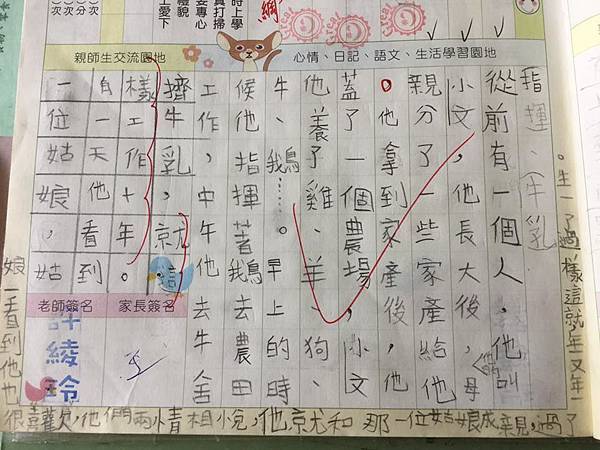 時上學
真打掃
親師生交流園地
心情、日記、語文、生活學習園地
指揮、(牛乳)
從前有一個人,他叫
小文,他長大後,他的母
親分了一些家產給他
。他拿到家產後,他
蓋了一個農場,小文
他養了雞、羊、狗、
牛、鵝……。早上的時
候他指揮著鵝去農田
工作,中午他去牛舍
擠牛乳,就這
樣工作十年。
自一天他看到
一位姑娘,姑
娘一看到他也
很喜歡他,他們兩情相悅,他就和那一位姑娘成親,過了
年又一年就這樣過了一生。
老師簽名
家長簽名
許綾玲